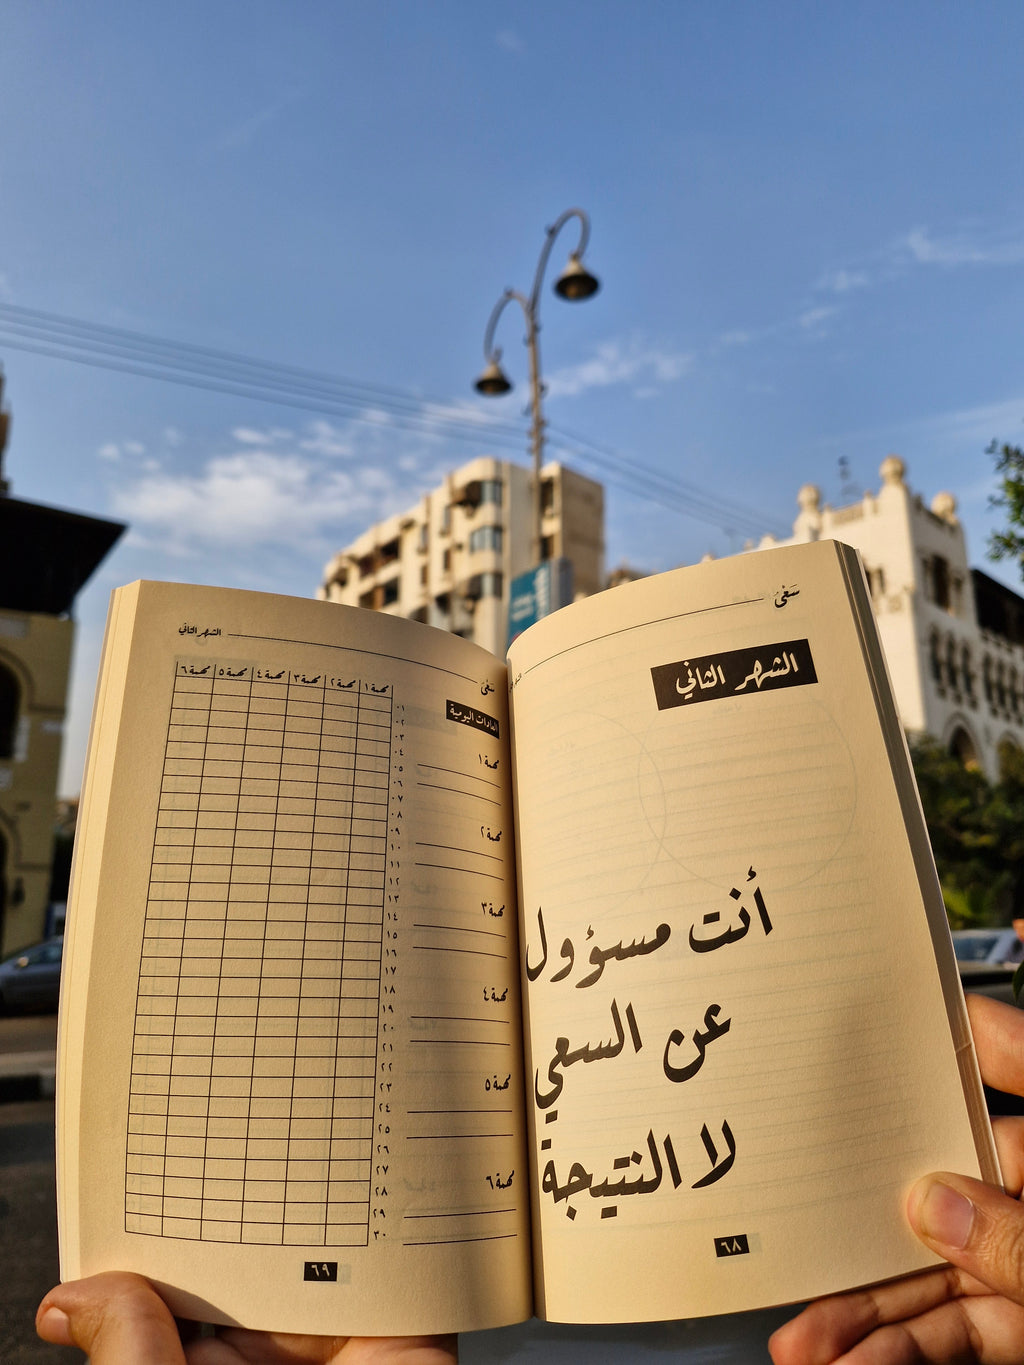 سَعْيٌ
الشهر الثاني
أنت مسؤول
عن السعي
لا النتيجة
٦٨
سَعْيٌ
الشهر الثاني
العادات اليومية
مهمة ١
مهمة ٢
مهمة ٣
مهمة ٤
مهمة ٥
مهمة ٦
مهمة ١ مهمة ٢ مهمة ٣ مهمة ٤ مهمة ٥ مهمة ٦
٠١
٠٢
٠٣
٠٤
٠٥
٠٦
٠٧
٠٨
٠٩
١٠
١١
١٢
١٣
١٤
١٥
١٦
١٧
١٨
١٩
٢٠
٢١
٢٢
٢٣
٢٤
٢٥
٢٦
٢٧
٢٨
٢٩
٣٠
٦٩